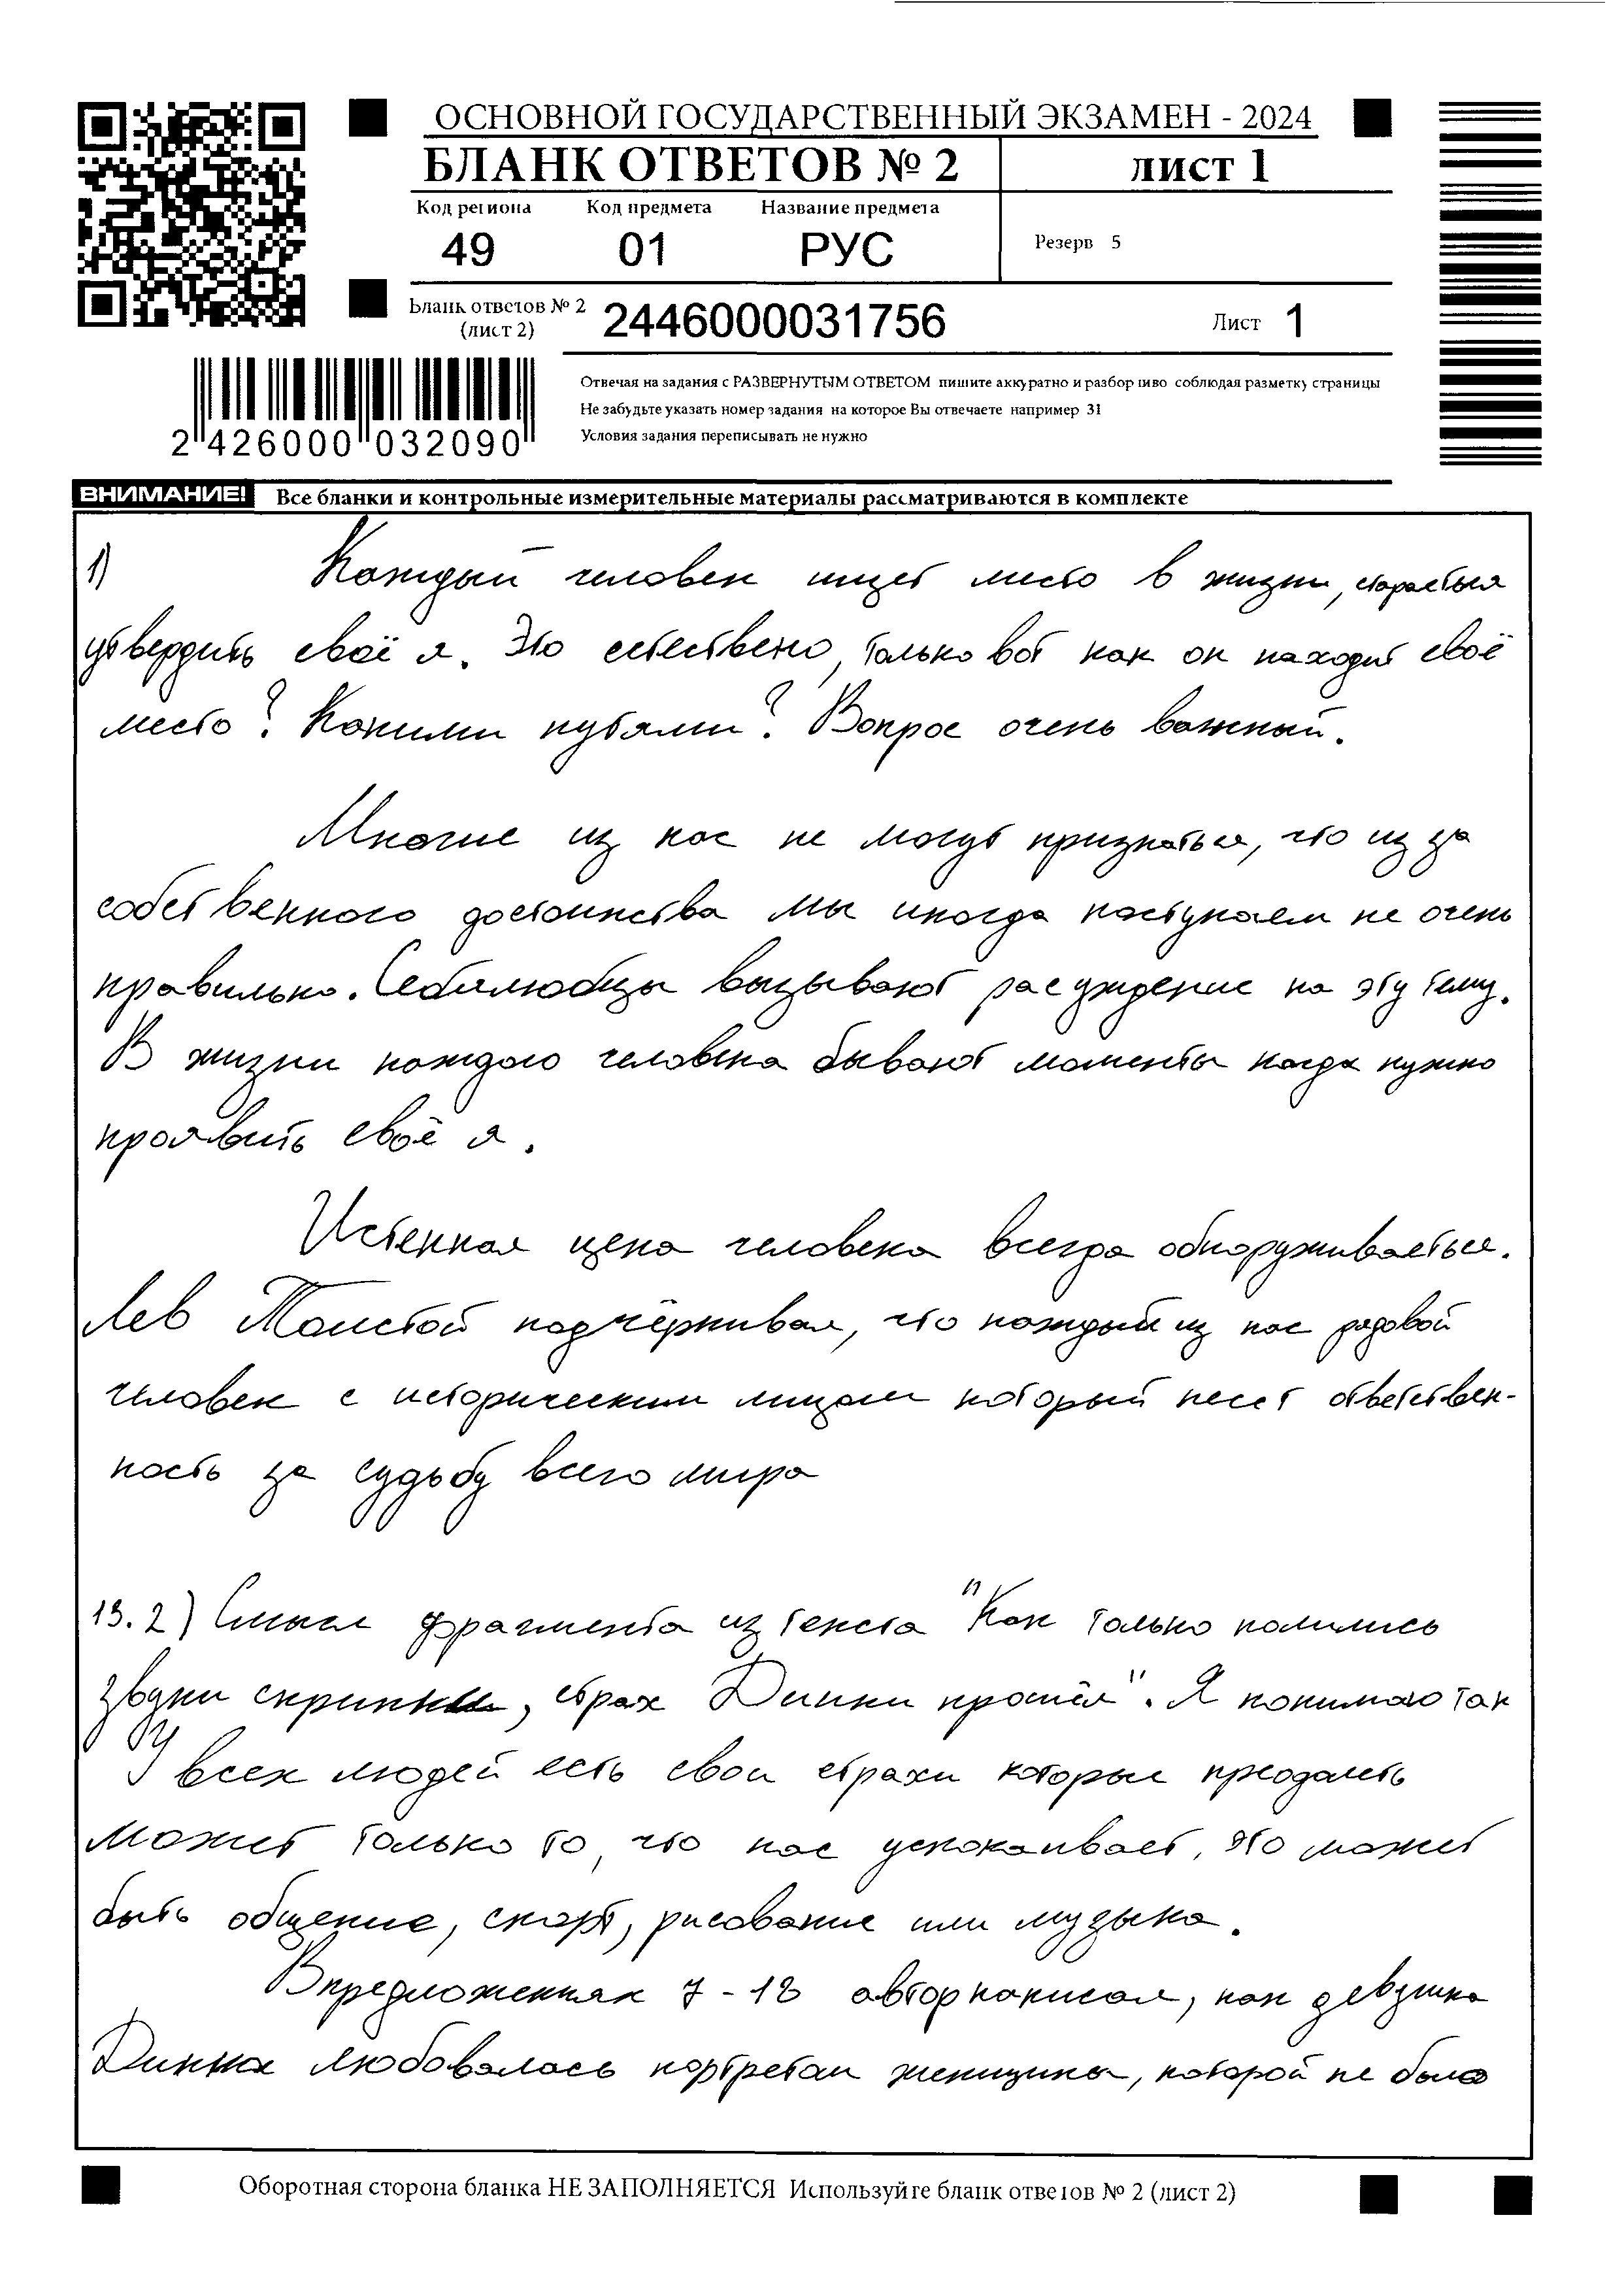 ОСНОВНОЙ ГОСУДАРСТВЕННЫЙ ЭКЗАМЕН - 2024
БЛАНК ОТВЕТОВ № 2
лист 1
Код региона Код предмета Название предмета
49 01 РУС
Резерв 5
Бланк ответов № 2
(лист 2)
2446000031756
Лист 1
Отвечая на задания с РАЗВЕРНУТЫМ ОТВЕТОМ пишите аккуратно и разборчиво соблюдая разметку страницы
Не забудьте указать номер задания на которое Вы отвечаете например 31
Условия задания переписывать не нужно
2 426000 032090
ВНИМАНИЕ! Все бланки и контрольные измерительные материалы рассматриваются в комплекте
1) Каждый человек ищет место в жизни, старается
утвердить своё я. Это естествено, только вот как он находит своё
место? Какими путями? Вопрос очень важный.
Многие из нас не могут признаться, что из за
собственного достоинства мы иногда поступаем не очень
правильно. Себялюбцы вызывают расуждение на эту тему.
В жизни каждого человека бывают моменты когда нужно
проявить своё я.
Истенная цена человека всегда обноруживаеться.
Лев Толстой подчёркивал, что каждый из нас рядовой
человек с историческим лицом который несет ответствен-
ность за судьбу всего мира
13.2) Смысл фрагмента из текста "Как только полились
звуки скрипки, страх Динки прошёл". Я понимаю так
У всех людей есть свои страхи которые преодолеть
может только то, что нас успокаивает, это может
быть общение, спорт, рисование или музыка.
Впредложениях 7-18 автор написал, как девушка
Динка любовалась портретам женщины, которой не было
Оборотная сторона бланка НЕ ЗАПОЛНЯЕТСЯ Используйте бланк ответов № 2 (лист 2)